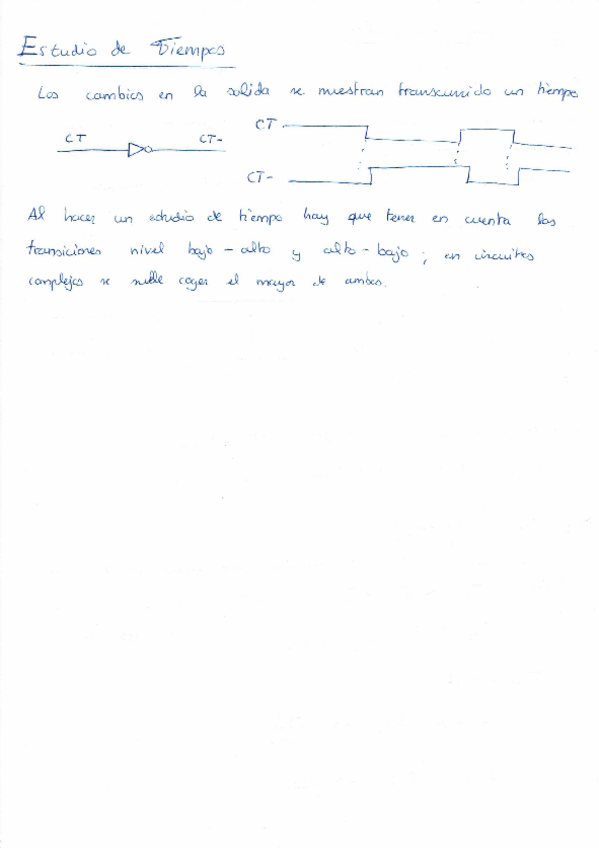 Estudio de Tiempos
Los cambios en la salida se muestran transcurrido un tiempo
CT CT-
CT
CT-
Al hacer un estudio de tiempo hay que tener en cuenta las
transiciones nivel bajo - alto y alto - bajo ; en circuitos
complejos se suele coger el mayor de ambos.